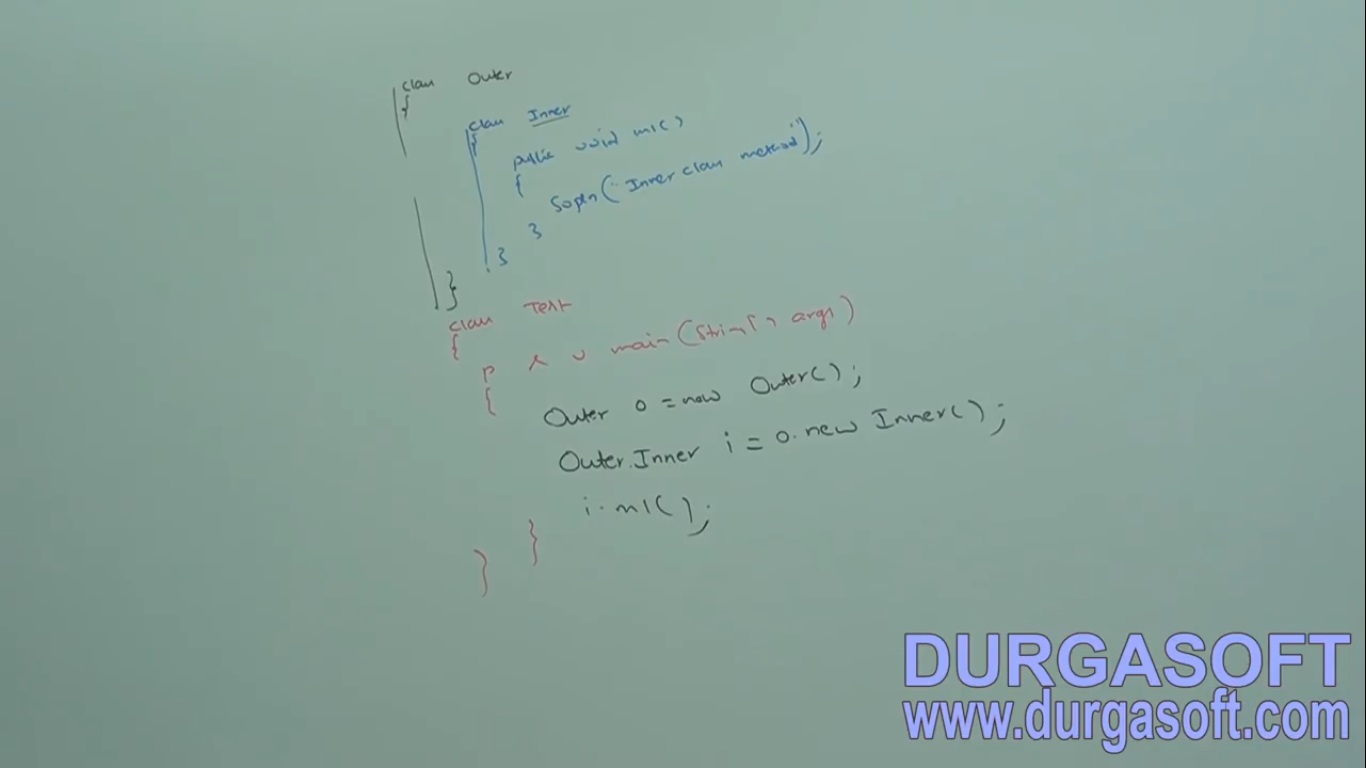 class Outer
{
class Inner
{
public void m1()
{
Sopln("Inner class method");
}
}
}
class Test
{
p s v main(String[] args)
{
Outer o = new Outer();
Outer.Inner i = o.new Inner();
i.m1();
}
}
DURGASOFT
www.durgasoft.com